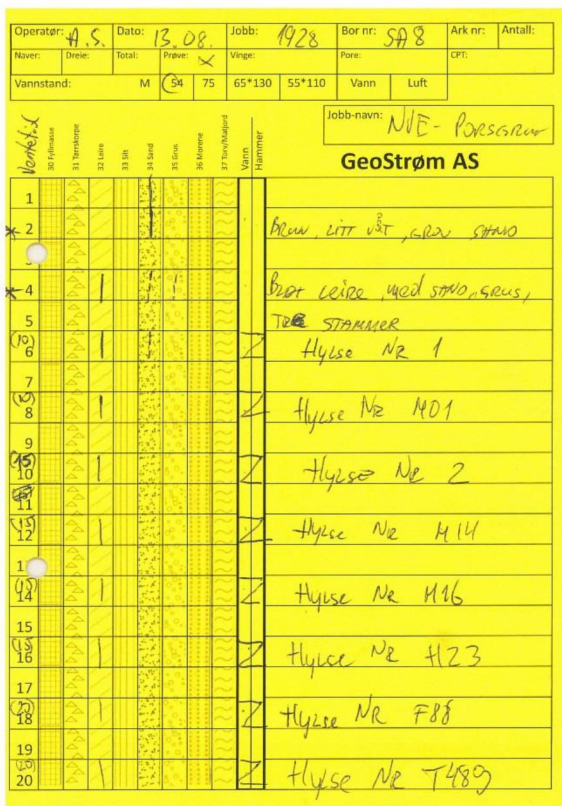 Operatør: A.S. Dato: 13.08. Jobb: 1928 Bor nr: SA8 Ark nr: Antall:
Naver: Dreie: Total: Prøve: X Vinge: Pore: CPT:
Vannstand: M 54 75 65*130 55*110 Vann Luft
Jobb-navn: NVE - PORSGRUNN
Ventetid 30 Fyllmasse 31 Tørrskorpe 32 Leire 33 Silt 34 Sand 35 Grus 36 Morene 37 Torv/Matjord Vann Hammer
GeoStrøm AS
1
* 2 BRUN, LITT VÅT, GROV SAND
* 4 BLØT LEIRE, med SAND, GRUS,
5 TRE STAMMER
(10) 6 Hylse NR 1
7
8 Hylse NR M01
9
(15) 10 Hylse NR 2
11
(15) 12 Hylse NR M14
1
(15) 14 Hylse NR M16
15
(15) 16 Hylse NR H23
17
18 Hylse NR F88
19
20 Hylse NR T489